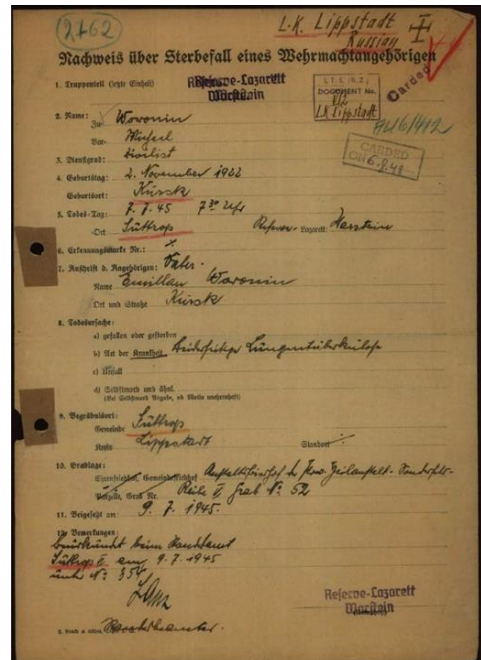 2762
L.K. Lippstadt
Russian
Nachweis über Sterbefall eines Wehrmachtangehörigen
Carded
1. Truppenteil (letzte Einheit)
Reserve-Lazarett
Warstein
I.T.S. (B.Z.)
DOCUMENT No.
L.K. Lippstadt
2. Name:
Zu- Woronin
Vor-
CARDED
ON 6.9.48
3. Dienstgrad: Zivilist
4. Geburtstag: 2. November 1922
Geburtsort: Kursk
5. Todes-Tag: 7.7.45 7 30 Uhr
-Ort Suttrop Reserve-Lazarett: Warstein
6. Erkennungsmarke Nr.:
7. Anschrift d. Angehörigen: Vater
Name Woronin
Ort und Straße Kursk
8. Todesursache:
a) gefallen oder gestorben
b) Art der Krankheit beiderseitige Lungentuberkulose
c) Unfall
d) Selbstmord und ähnl.
(Bei Selbstmord Angabe, ob Motiv unehrenhaft)
9. Begräbnisort:
Gemeinde Suttrop
Kreis Lippstadt Standort
10. Grablage:
Ehrenfriedhof, Gemeindefriedhof Anstaltsfriedhof der Prov. Heilanstalt
Parzelle, Grab Nr. Reihe V Grab Nr. 52
11. Beigesetzt am: 9. 7. 1945.
12. Bemerkungen:
beurkundet beim Standesamt
Suttrop am 9.7.1945
unter Nr. 354
Reserve-Lazarett
Warstein